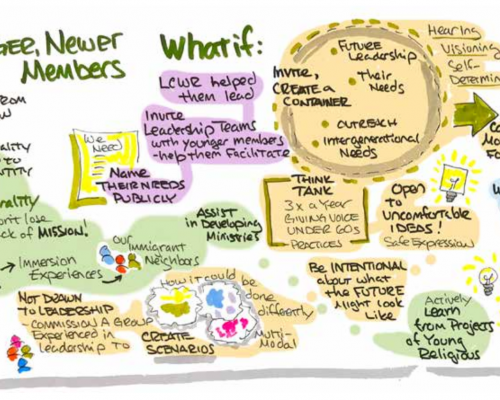 Newer
Members
What if:
LCWR helped
them lead
Invite
Leadership Teams
with younger members
-help them Facilitate
We
Need
Name
THEIR NEEDS
PUBLICLY
MISSION!
→ Immersion
Experiences →
our
Immigrant
Neighbors
Assist
in Developing
Ministries
NOT DRAWN
to LEADERSHIP
COMMISSION A GROUP
Experienced in
leadership to
CREATE
SCENARIOS
How it could be
done
differently
Multi-
Modal
Invite,
CREATE a
CONTAINER
• FUTURE
Leadership
• Their
Needs
• OUTREACH
• Intergenerational
Needs
THINK
TANK
3x a year
GIVING VOICE
UNDER 60s
PRACTICES
Open
to
uncomfortable
IDEAS!
Safe Expression
Be INTENTIONAL
about what
the FUTURE
Might Look
Like
Actively
Learn
from Projects
of Young
Religious
Hearing
Visioning
Self-